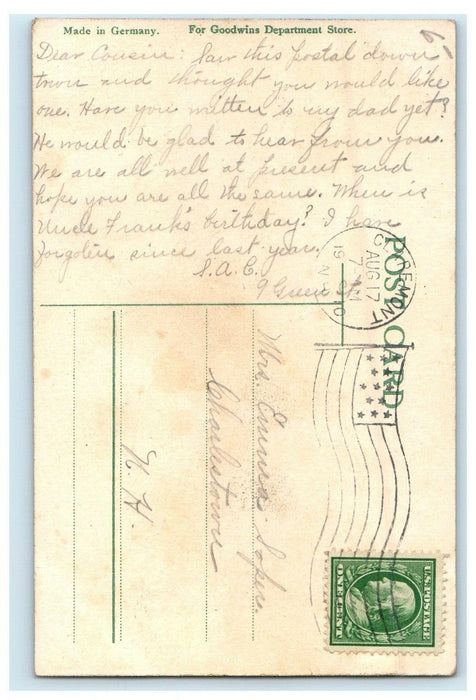 Made in Germany. For Goodwins Department Store.
Dear Cousin: Saw this postal down
town and thought you would like
one. Have you written to my dad yet?
He would be glad to hear from you.
We are all well at present and
hope you are all the same. When is
Uncle Frank's birthday? I have
forgoten since last year.
S.A.C.
9 Green St.
POST CARD
CLAREMONT
AUG 17
7 PM
19
N.H.
Mrs. Emma
Charlestown
N. H.
U.S. POSTAGE
ONE CENT